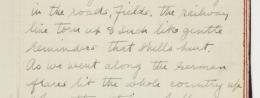 in the roads, fields, the railway
line torn up & such like gentle
reminders that shells hurt.
As we went along the German
flares lit the whole country up